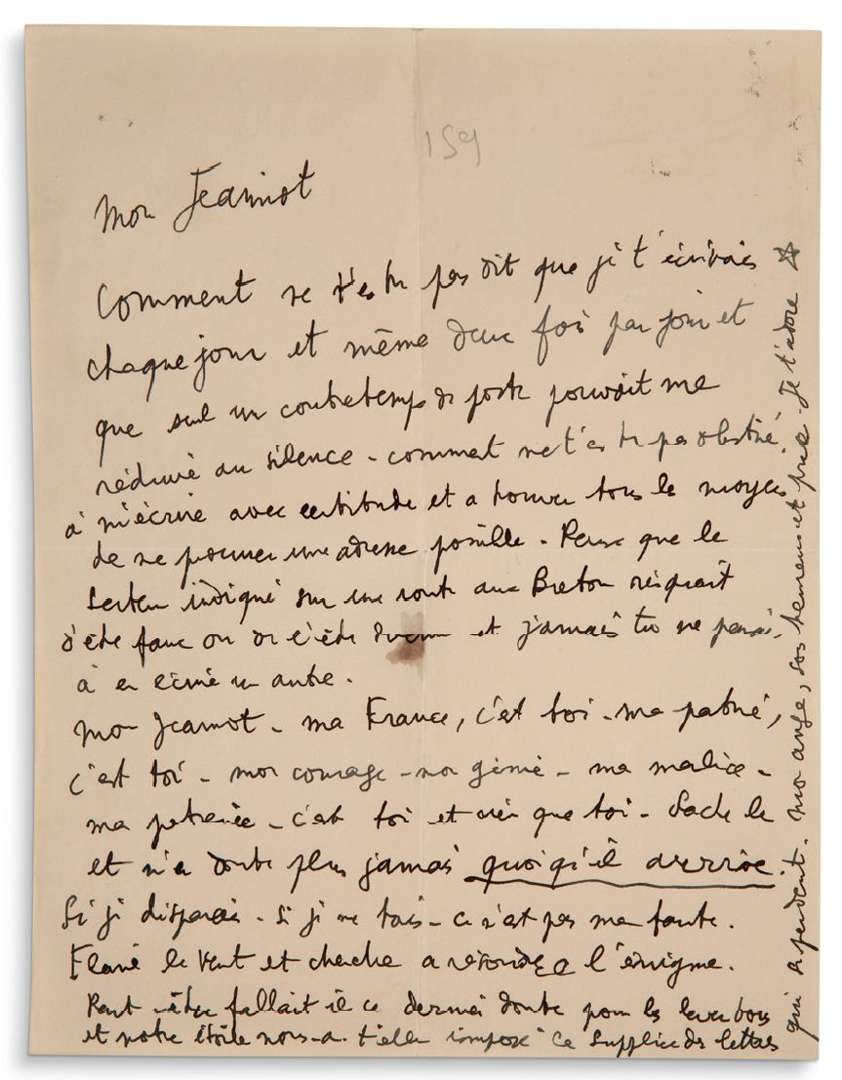 159
Mon Jeannot
Comment ne t'es tu pas dit que je t'écrivais
chaque jour et même deux fois par jour et
que seul un contretemps de poste pouvait me
réduire au silence - comment ne t'es tu pas obstiné
à m'écrire avec certitude et a trouver tous les moyens
de me procurer une adresse possible. Penser que le
secteur indiqué sur une route aux Breton risquait
d'être faux ou de l'être devenu et jamais tu ne pensais
à en écrire un autre.
Mon Jeannot - ma France, c'est toi - ma patrie,
c'est toi - mon courage - mon génie - ma malice -
ma patience - c'est toi et rien que toi - Sache le
et n'en doute plus jamais quoi qu'il arrive.
Si je disparais - Si je me tais - ce n'est pas ma faute.
Flaire le vent et cherche a résoudre l'énigme.
Peut être fallait il ce dernier doute pour les
et notre étoile nous a t'elle imposé ce supplice des lettres
qui se perdent. Mon ange, sois heureux et prie - Je t'adore ☆